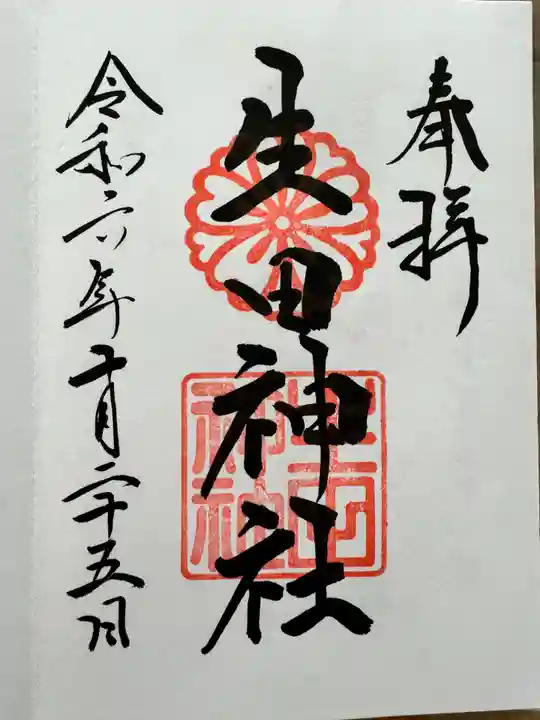 奉拝
生田神社
生田神社
令和六年十月二十五日